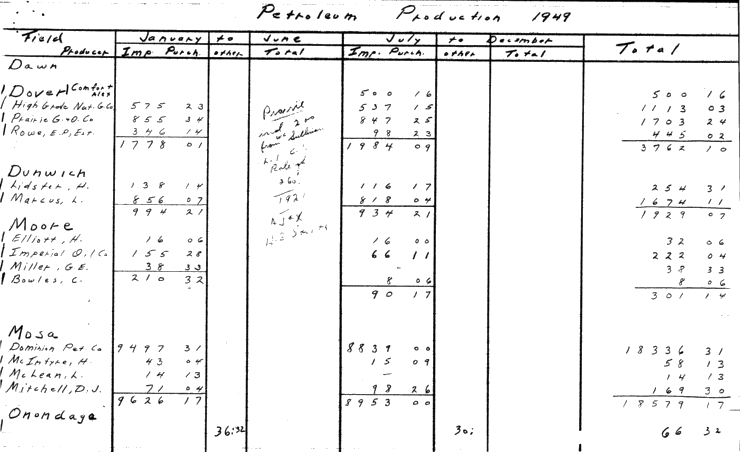 Petroleum Production 1949
Field January to June July to December Total
Producer Imp. Purch. other Total Imp. Purch. other Total
Dawn
Dover Comfort 500 16 500 16
High Grade Nat. G. Co 575 23 537 15 1113 03
Prairie G. & O. Co 855 34 847 25 1703 24
Rowe, E.P., Est. 346 14 98 23 445 02
1778 01 1984 09 3762 10
Prairie
from
Rate of
Dunwich
Lidster, H. 138 14 116 17 254 31
Marcus, L. 856 07 818 04 1674 11
994 21 934 21 1929 07
Moore
Elliott, H. 16 06 16 00 32 06
Imperial Oil Co 155 28 66 11 222 04
Miller, G.E. 38 33 38 33
Bowles, C. 8 06 8 06
210 32 90 17 301 14
Mosa
Dominion Pet. Co 9497 31 8839 00 18336 31
McIntyre, H. 43 04 15 09 58 13
McLean, L. 14 13 – 14 13
Mitchell, D.J. 71 04 98 26 169 30
9626 17 8953 00 18579 17
Onondaga
36:32 30: 66 32